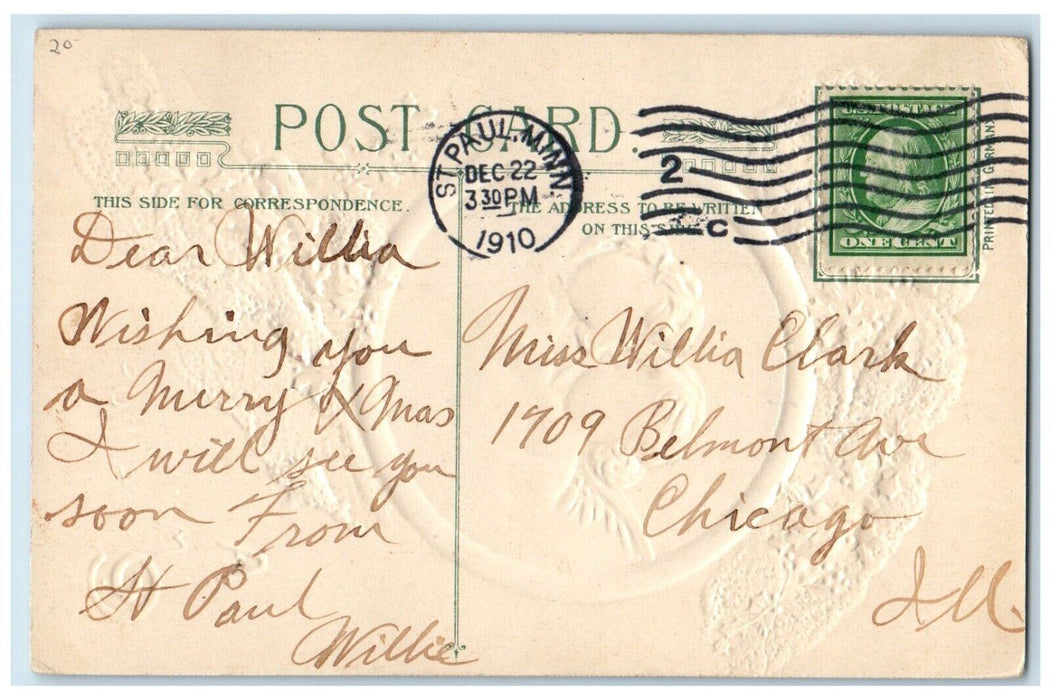 20
POST CARD.
THIS SIDE FOR CORRESPONDENCE.
THE ADDRESS TO BE WRITTEN
ON THIS SIDE
ST PAUL, MINN
DEC 22
3 30 PM
1910
2
C
U.S. POSTAGE
ONE CENT
PRINTED IN GERMANY
Dear Willia
Wishing you
a Merry XMas
I will see you
soon From
St Paul
Willie
Miss Willia Clark
1709 Belmont Ave
Chicago
Ill.